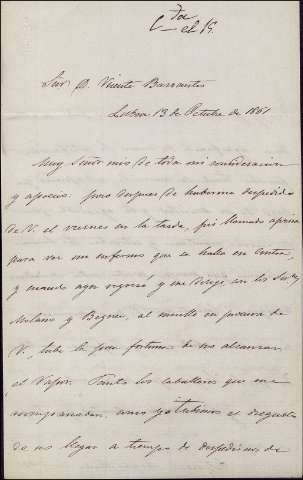 Sor D. Vicente Barrantes
Lisboa 13 de Octubre de 1861
Muy Señor mio de toda mi consideracion
y aprecio: poco despues de haberme despedido
de V. el viernes en la tarde, fui llamado aprisa
para ver un enfermo que se halla en Cintra,
y cuando ayer regresé y me dirigí con los Sres
Molano y Begner, al muelle en procura de
V., tube la poca fortuna de no alcanzar
el Vapor. Tanto los caballeros que me
acompañaban, como yo tubimos el disgusto
de no llegar a tiempo de despedirnos de